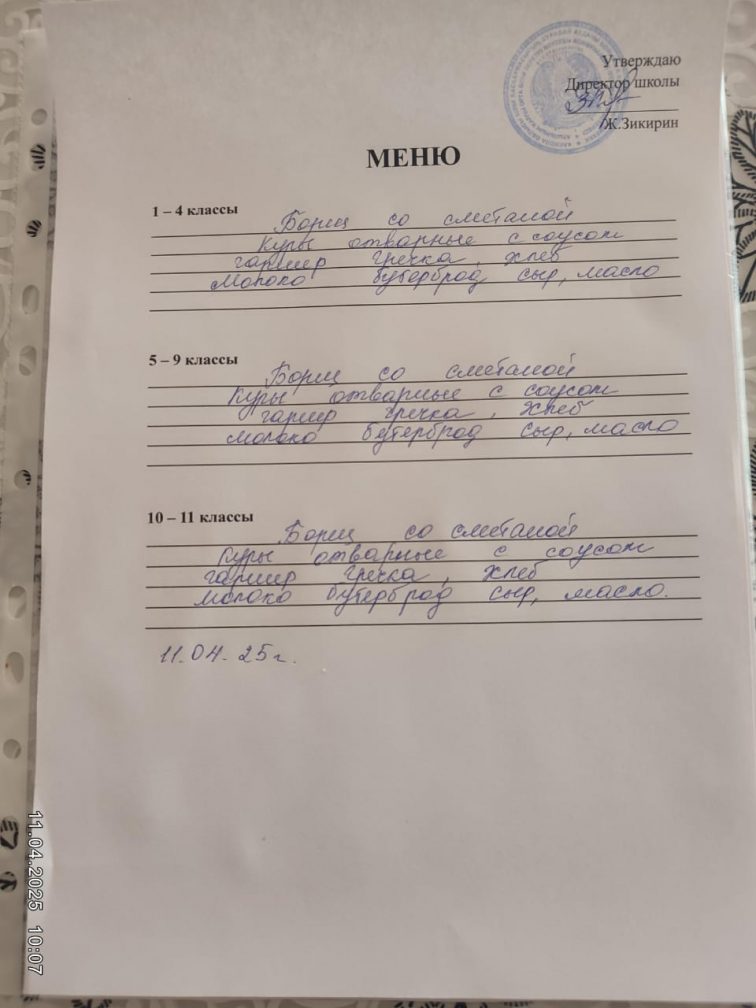 Утверждаю
Директор школы
Ж.Зикирин
МЕНЮ
1 – 4 классы
Борщ со сметаной
Куры отварные с соусом
гарнир гречка, хлеб
Молоко бутерброд сыр, масло
5 – 9 классы
Борщ со сметаной
Куры отварные с соусом
гарнир гречка, хлеб
молоко бутерброд сыр, масло
10 – 11 классы
Борщ со сметаной
Куры отварные с соусом
гарнир гречка, хлеб
молоко бутерброд сыр, масло.
11.04.25г.
11.04.2025 10:07